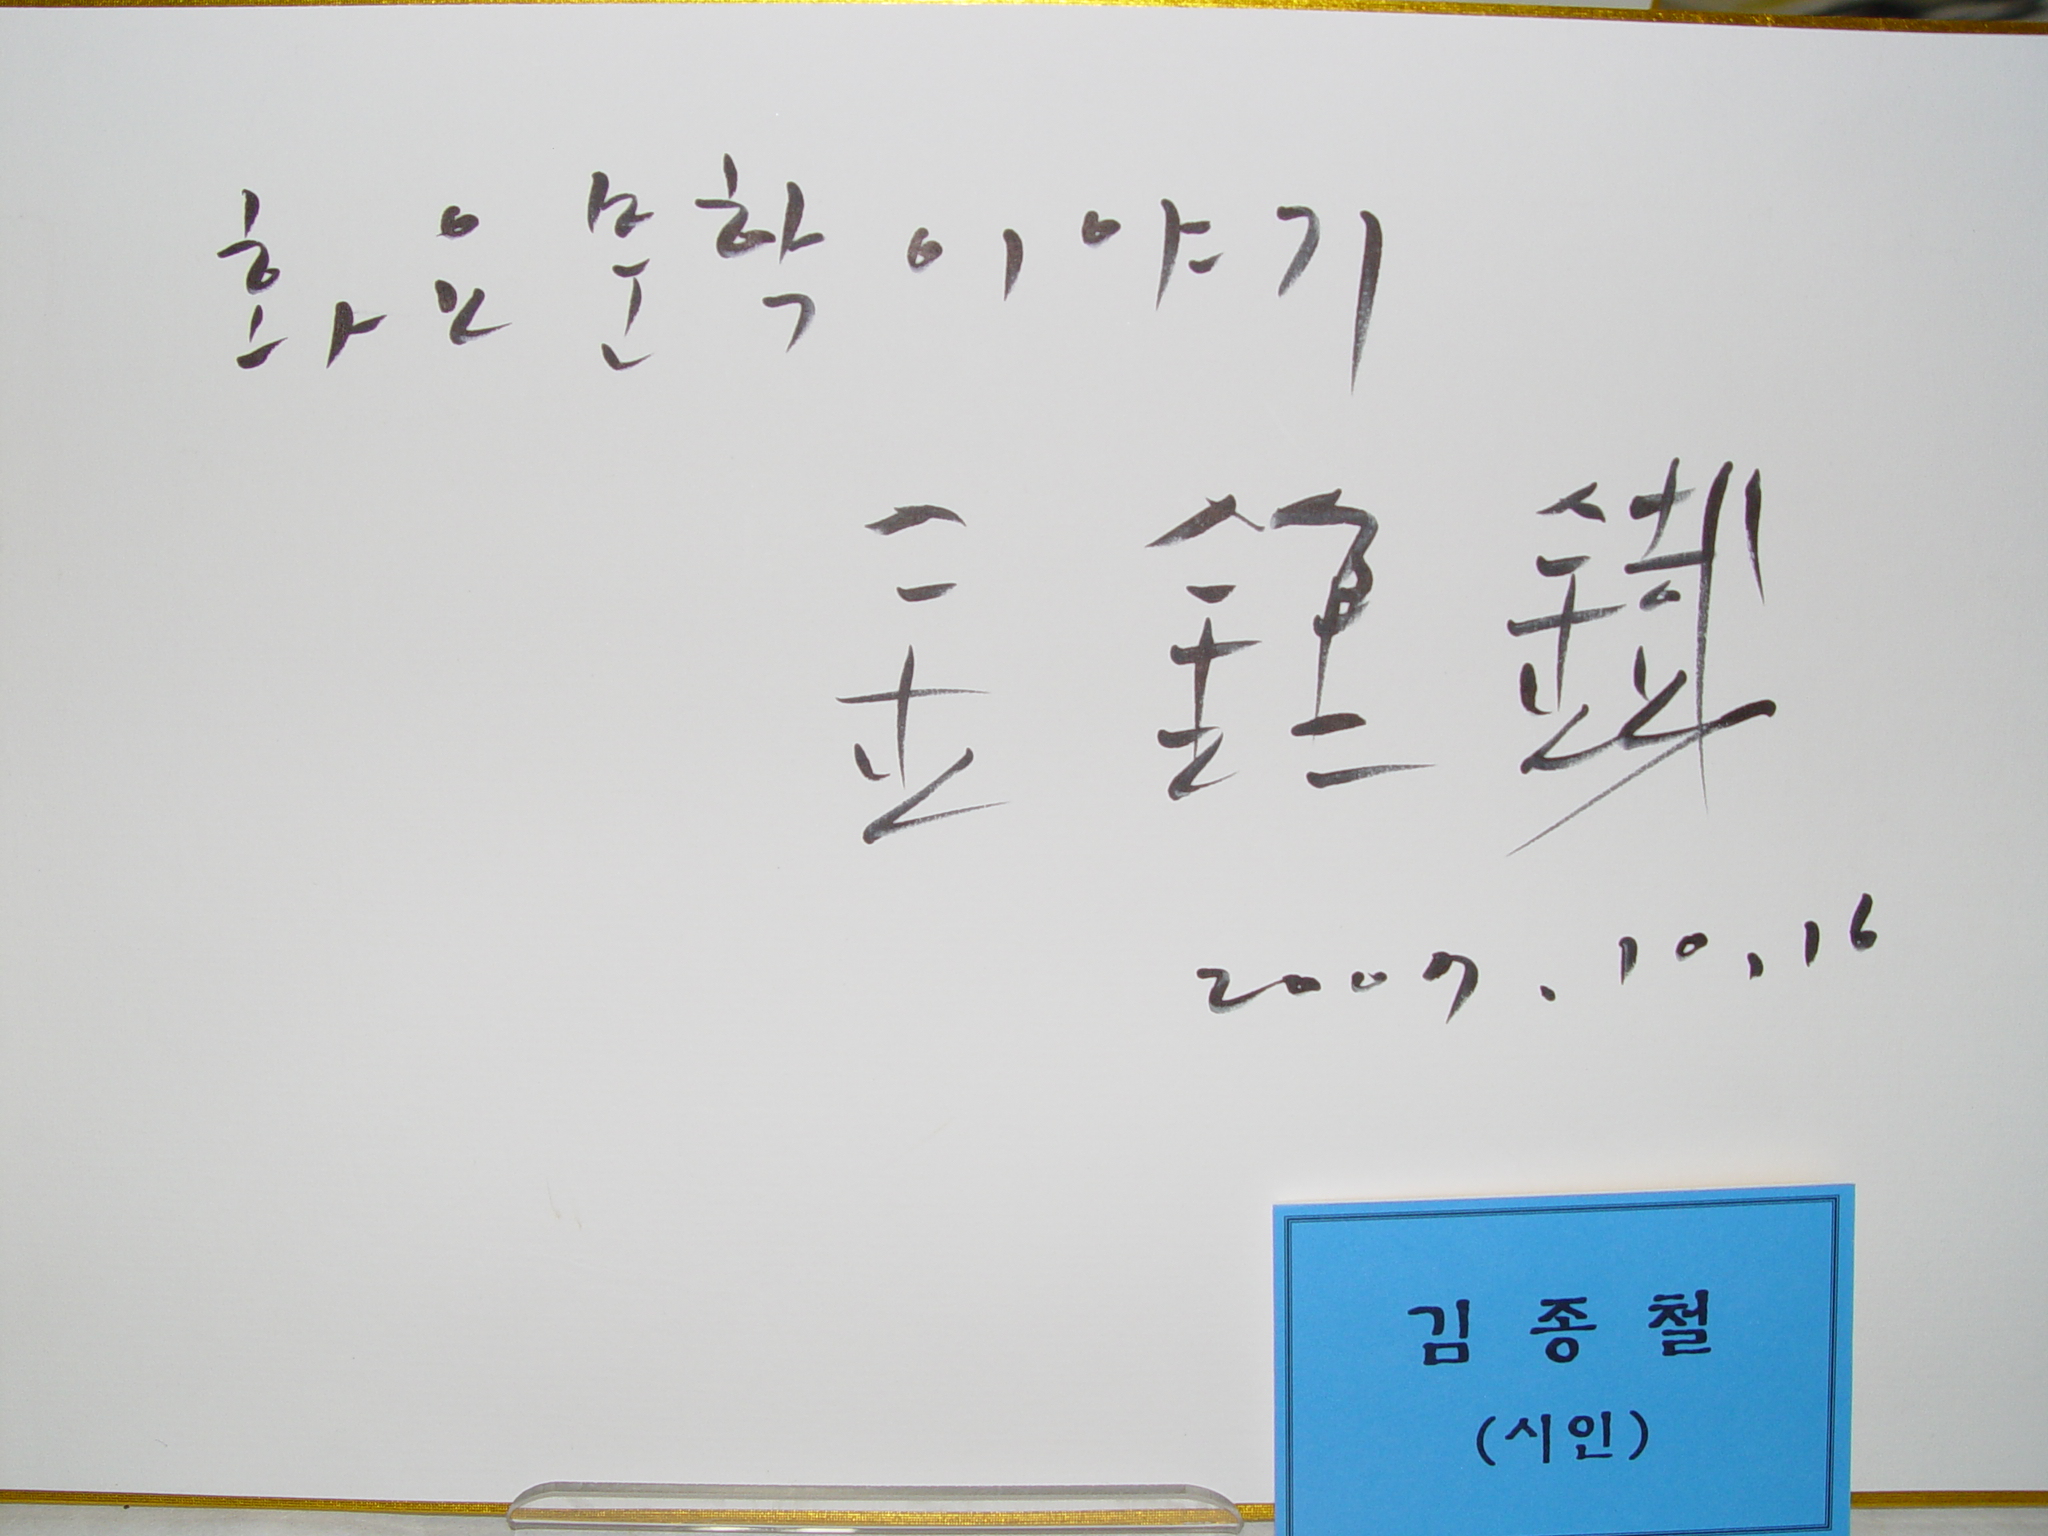 화요문학이야기
金鍾鐵
2007.10.16
김종철
(시인)